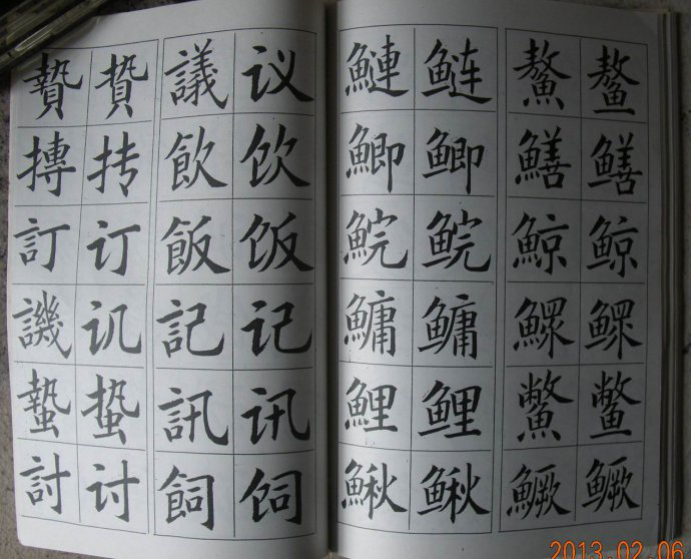 贄 贽 議 议
摶 抟 飲 饮
訂 订 飯 饭
譏 讥 記 记
蟄 蛰 訊 讯
討 讨 飼 饲
鰱 鲢 鰲 鳌
鯽 鲫 鱔 鳝
鯇 鲩 鯨 鲸
鱅 鳙 鰥 鳏
鯉 鲤 鱉 鳖
鰍 鳅 鱖 鳜
2013.02.06